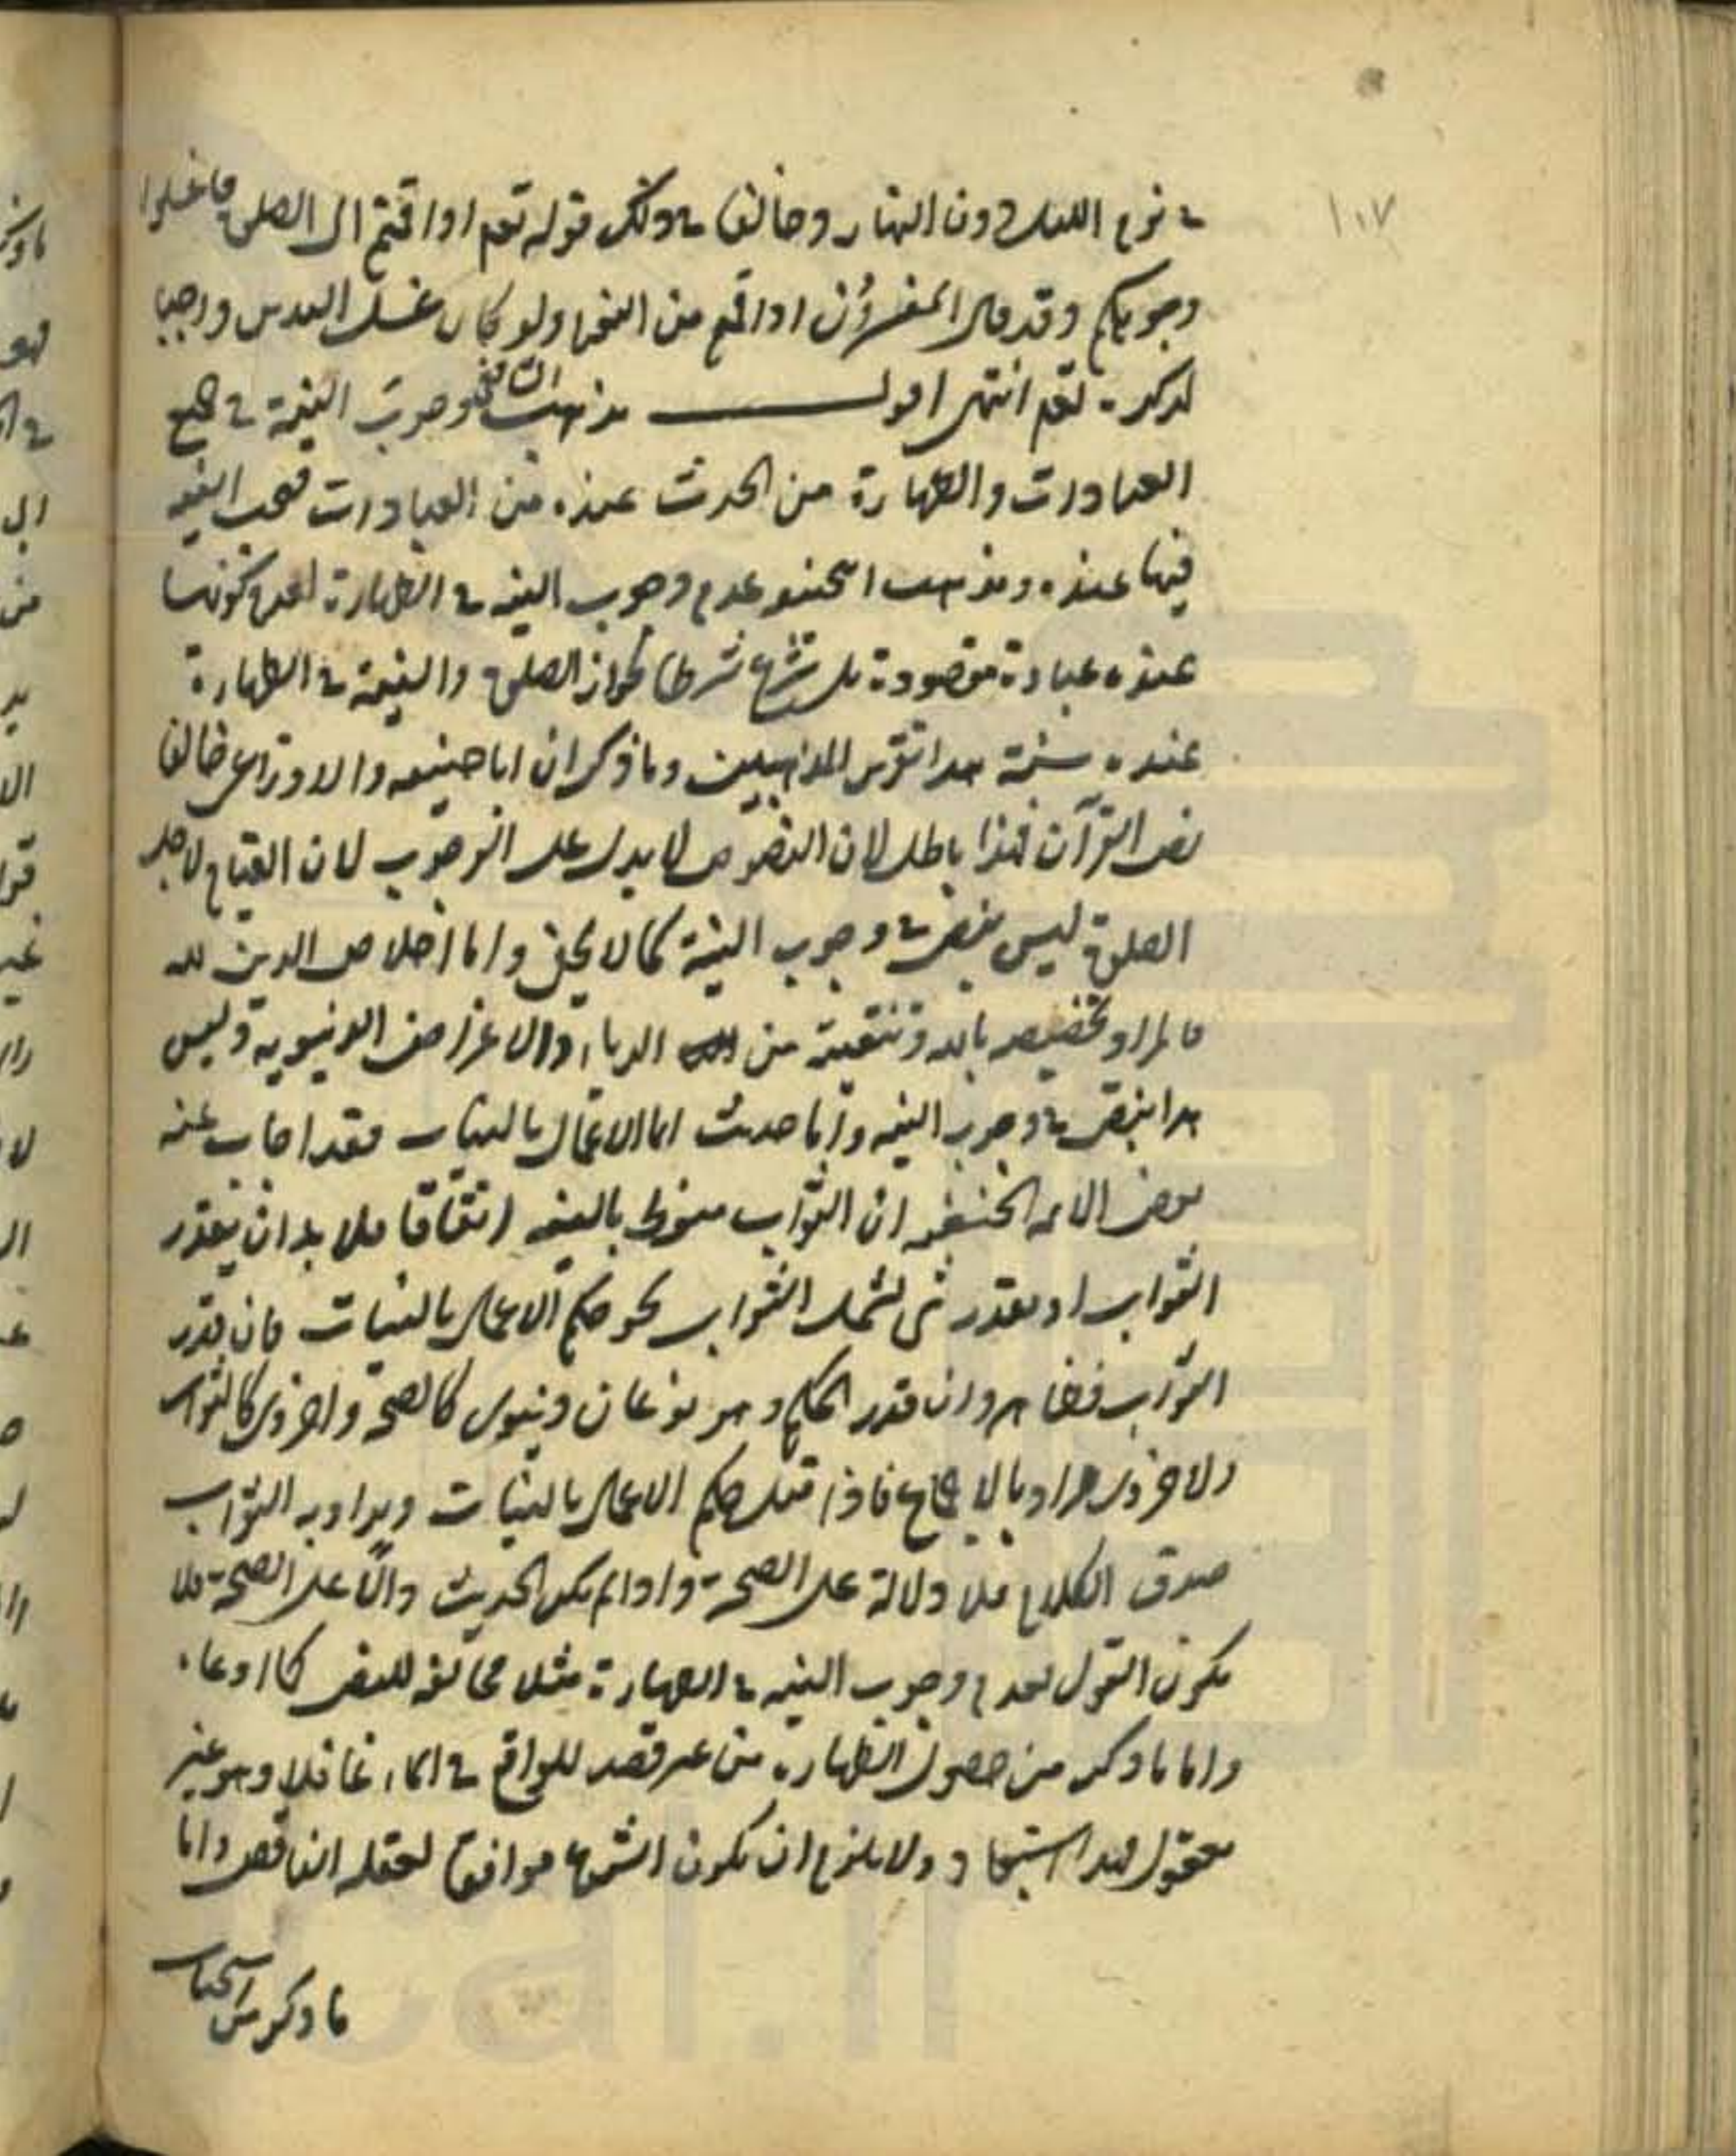 ١٠٧
في نوم الليل دون النهار وخالفا في ذلك قوله تعم اذا قمتم الى الصلوة فاغسلوا
وجوهكم وقد قال المفسرون اذا قمتم من النوم ولو كان غسل اليدين واجبا
لذكره تعم انتهى اقول مذهب الشافعي وجوب النية في جميع
العبادات والطهارة من الحدث عنده من العبادات فيجب النية
فيها عنده ومذهب ابي حنيفة عدم وجوب النية في الطهارة لعدم كونها
عنده عبادة مقصودة بل شرع شرطا لجواز الصلوة والنية في الطهارة
عنده سنة هذا تقرير المذهبين وما ذكر ان ابا حنيفه والاوزاعي خالفا
نص القرآن فهذا باطل لان النصوص لا يدل على الوجوب لان القيام لاجل
الصلوة ليس بنص في وجوب النية كما لا يخفى واما اخلاص الدين لله
فالمراد تخصيصه بالله وتنقيته من الرياء والاغراض الدنيوية وليس
هذا بنص في وجوب النية واما حديث انما الاعمال بالنيات فقد اجاب عنه
بعض الائمه الحنفيه ان الثواب منوط بالنية اتفاقا فلا بد ان يقدر
الثواب او يقدر شي يشمل الثواب نحو حكم الاعمال بالنيات فان قدر
الثواب فظاهر وان قدر الحكم وهو نوعان دنيوي كالصحة واخروي كالثواب
والاخروي مراد بالاجماع فاذا قيل حكم الاعمال بالنيات ويراد به الثواب
صدق الكلام فلا دلالة على الصحة واذا لم يكن الحديث دالا على الصحة فلا
يكون القول بعدم وجوب النية في الطهارة مثلا مخالفة للنص كما ادعاه
واما ما ذكره من حصول الطهارة من غير قصد للواقع في الماء غافلا وهو غير
معقول فهذا استبعاد ولا يلزم ان يكون الشرع موافقا لعقله الناقص واما
ما ذكر من